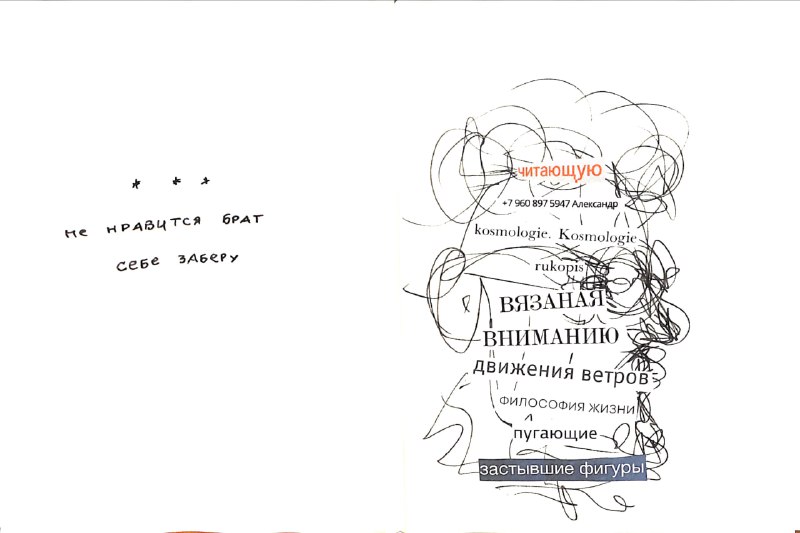 * * *
не нравится брат
себе заберу
читающую
+7 960 897 5947 Александр
kosmologie. Kosmologie
rukopis
ВЯЗАНАЯ
ВНИМАНИЮ
движения ветров
ФИЛОСОФИЯ ЖИЗНИ
пугающие
застывшие фигуры